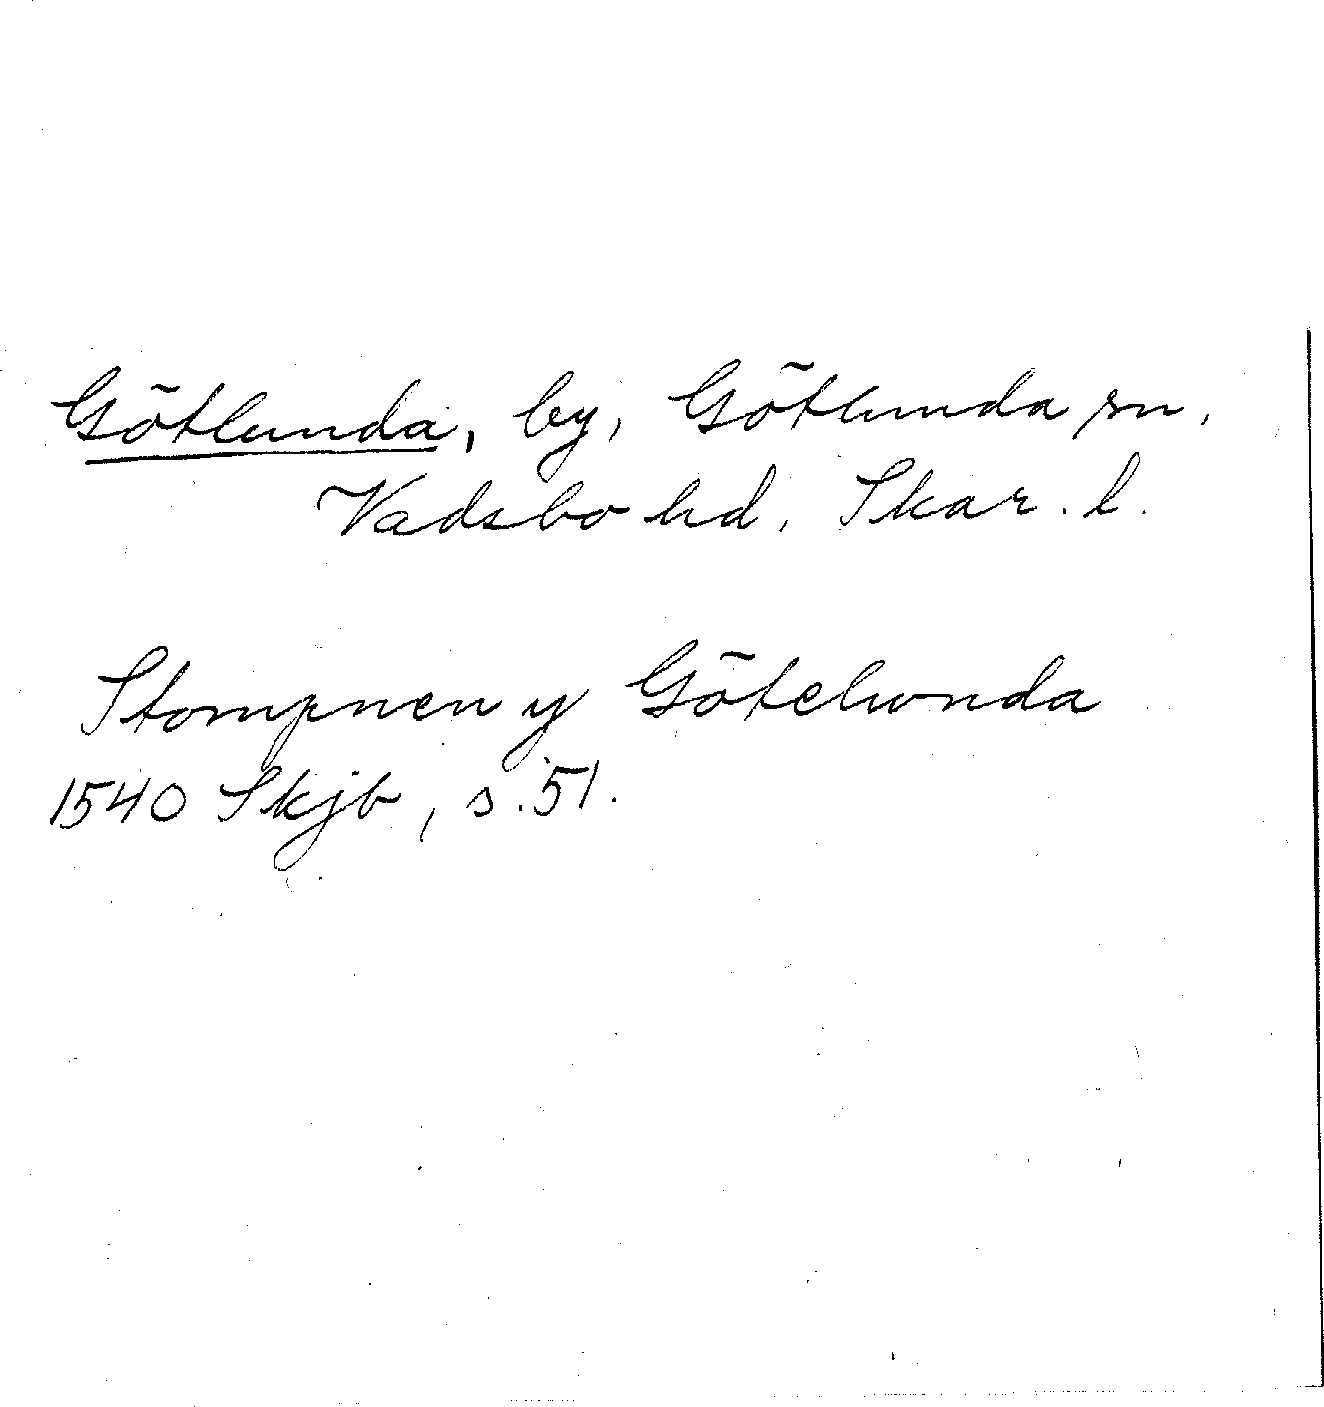 Götlunda, by, Götlunda sn,
Vadsbo hd, Skar. l.
Stompnen y Götelunda
1540 Skjb, s. 51.